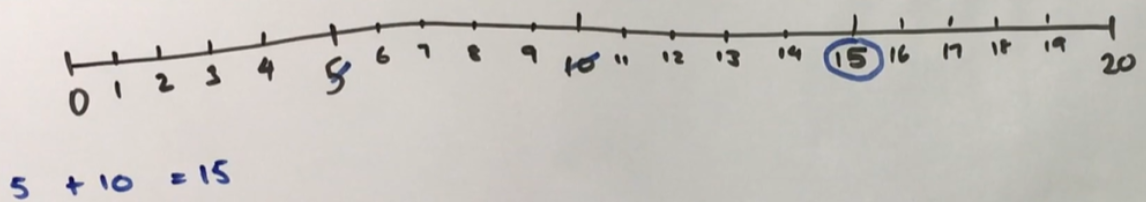 0 1 2 3 4 5 6 7 8 9 10 11 12 13 14 15 16 17 18 19 20
5 + 10 = 15